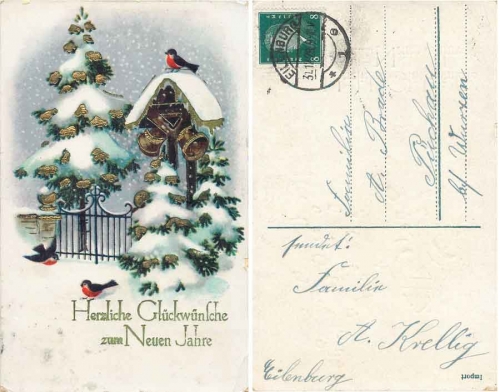 Herzliche Glückwünsche
zum Neuen Jahre
8 8
EILENBURG
Familie
A. Brade
Püchau
b/ Wurzen
sendet:
Familie
A. Krellig
Eilenburg
Import